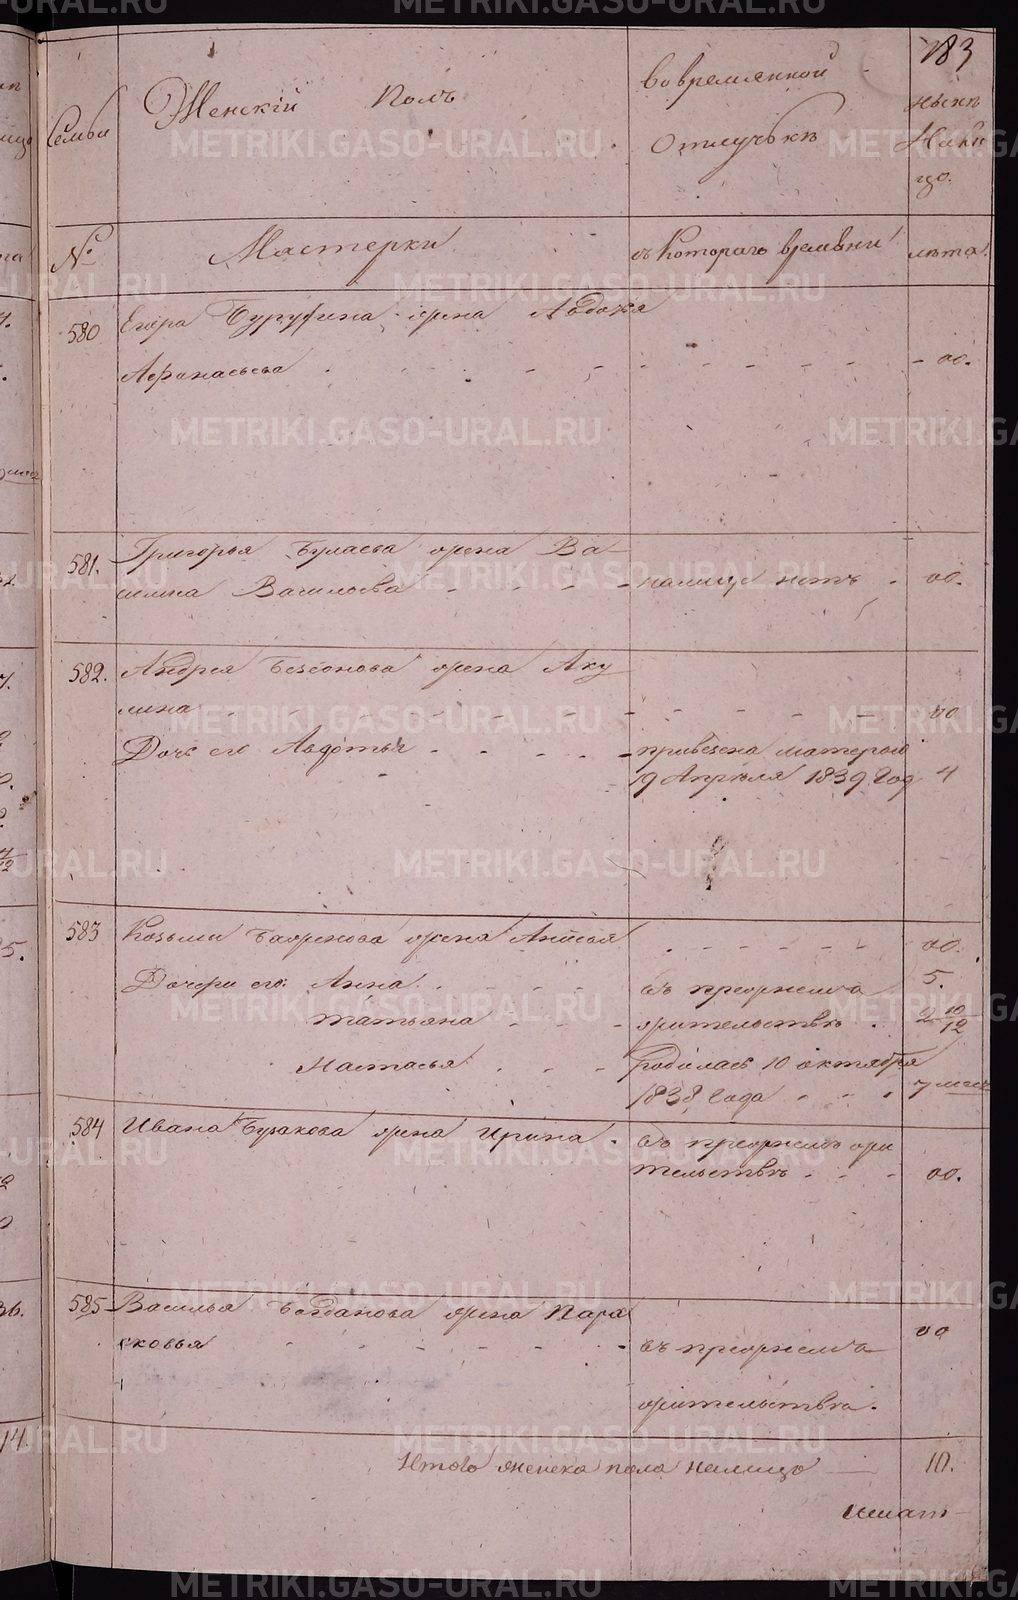 183
Семьи
Женскій Полъ
вовременной
отлучькѣ
нынѣ
Нали
цо.
№
Мастерки
съ Котораго времѣни
лѣта.
580
Егора Бугуфина жена Авдотья
Афанасьева - - - - 00.
581. Григорья Булаева жена Ва-
силиса Василоева - - налицо нетъ - 00.
582. Андрея Безсонова жена Аку
лина - - - - 00
Дочь его Авдотья - - - привезена матерью
19 Апреля 1839 год 4
583 Козьмы Баженова жена Анисья - - - 00.
Дочери его: Анна - - въ прежнемъ 5.
Татьяна - - - жительствѣ. 2 10/12
Настасья - - - родилась 10 октября
1838 года - - - 7 меся
584 Ивана Бузакова жена Ирина - въ прежнемъ жи
тельствѣ - - - 00.
585 Василья Богданова жена Пара
сковья - - - въ прежнемъ 00
жительствѣ.
Итого женска пола налицо — 10.
METRIKI.GASO-URAL.RU